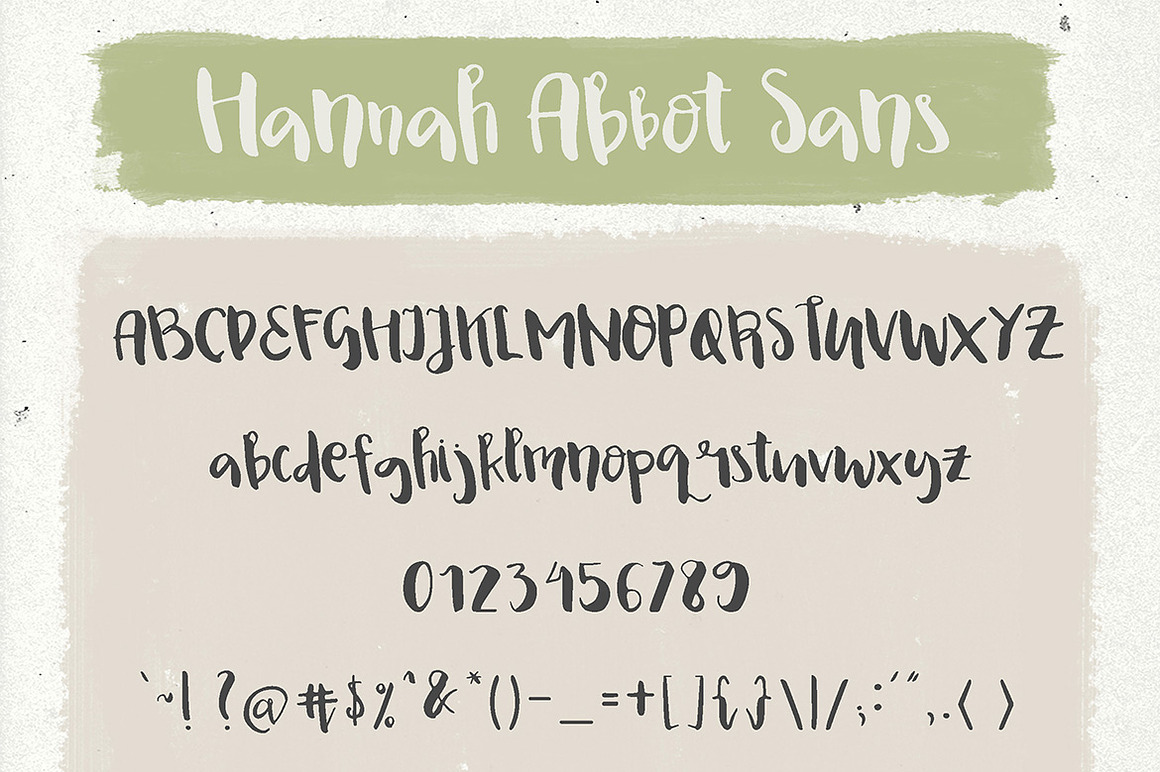 Hannah Abbot Sans
ABCDEFGHIJKLMNOPQRSTUVWXYZ
abcdefghijklmnopqrstuvwxyz
0123456789
`~! ?@#$%^&*()-_=+[]{}\|/;:'",.‹ ›